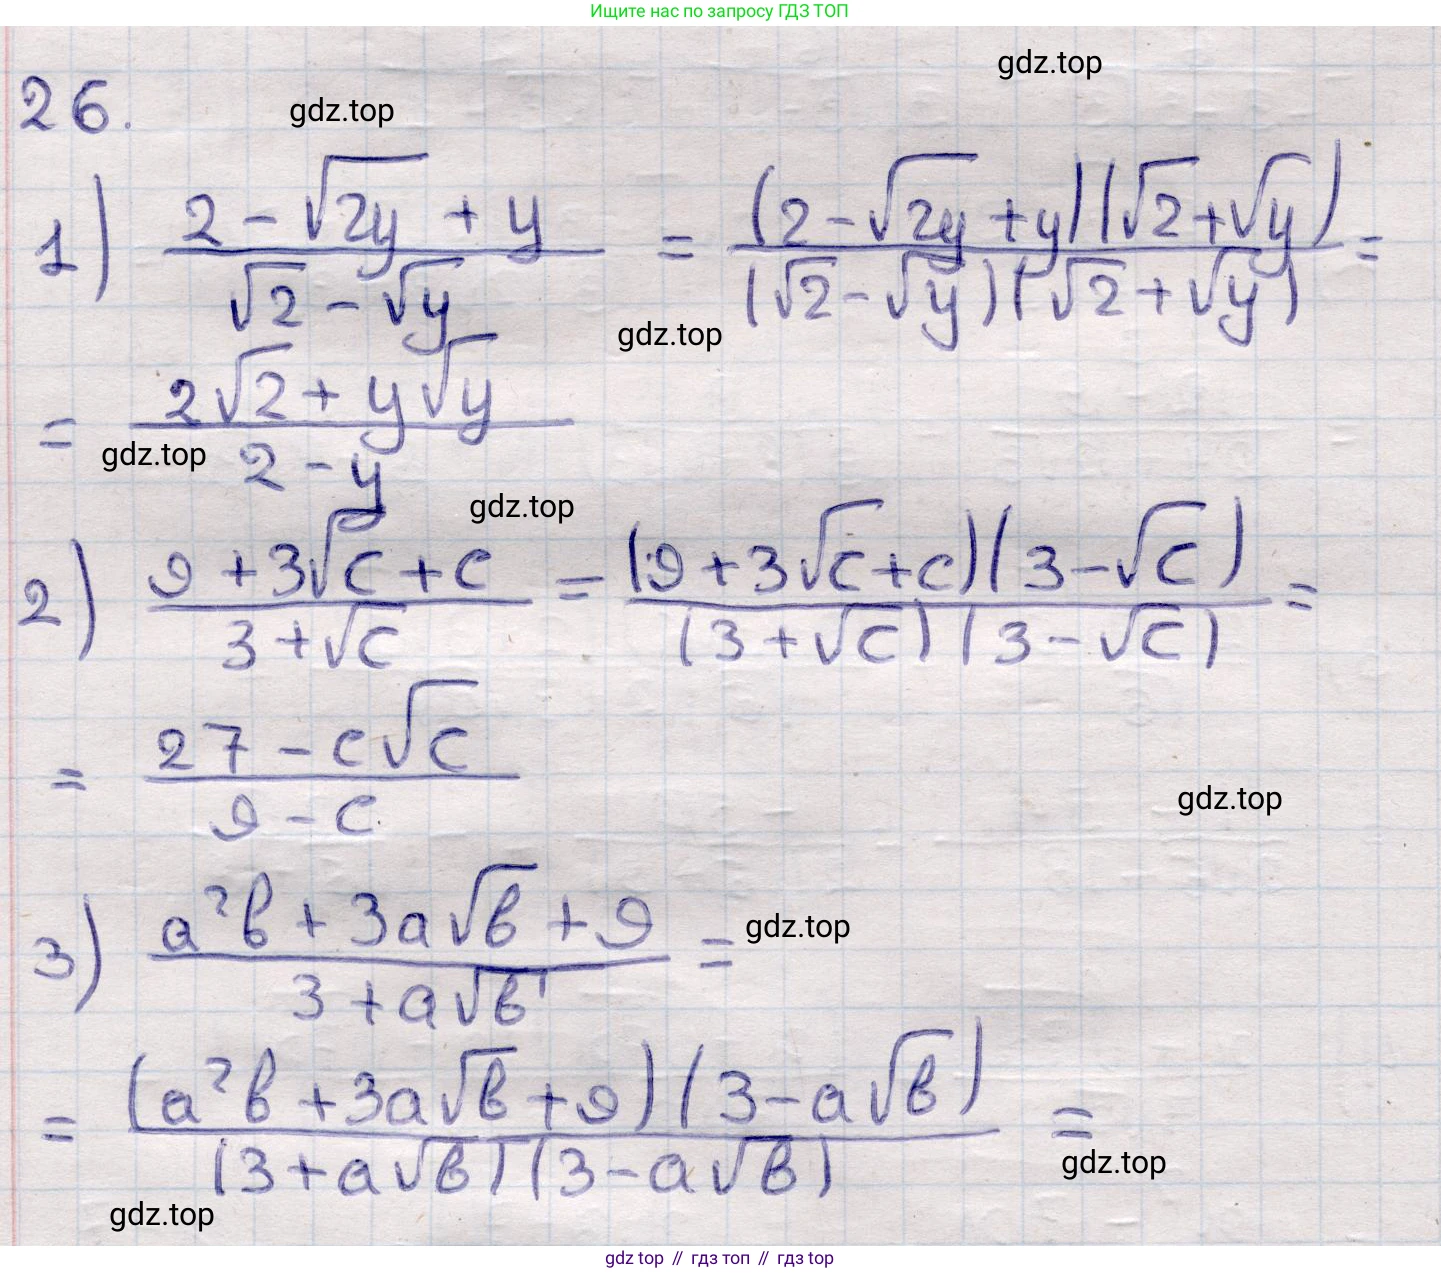 Ищите нас по запросу ГДЗ ТОП
gdz.top
26.
gdz.top
1) (2 - √2y + y)/(√2 - √y) = ((2 - √2y + y)(√2 + √y))/((√2 - √y)(√2 + √y)) =
gdz.top
= (2√2 + y√y)/(2 - y)
gdz.top
gdz.top
2) (9 + 3√c + c)/(3 + √c) = ((9 + 3√c + c)(3 - √c))/((3 + √c)(3 - √c)) =
= (27 - c√c)/(9 - c)
gdz.top
3) (a²b + 3a√b + 9)/(3 + a√b) =
gdz.top
= ((a²b + 3a√b + 9)(3 - a√b))/((3 + a√b)(3 - a√b)) =
gdz.top
gdz.top
gdz top // гдз топ // гдз top